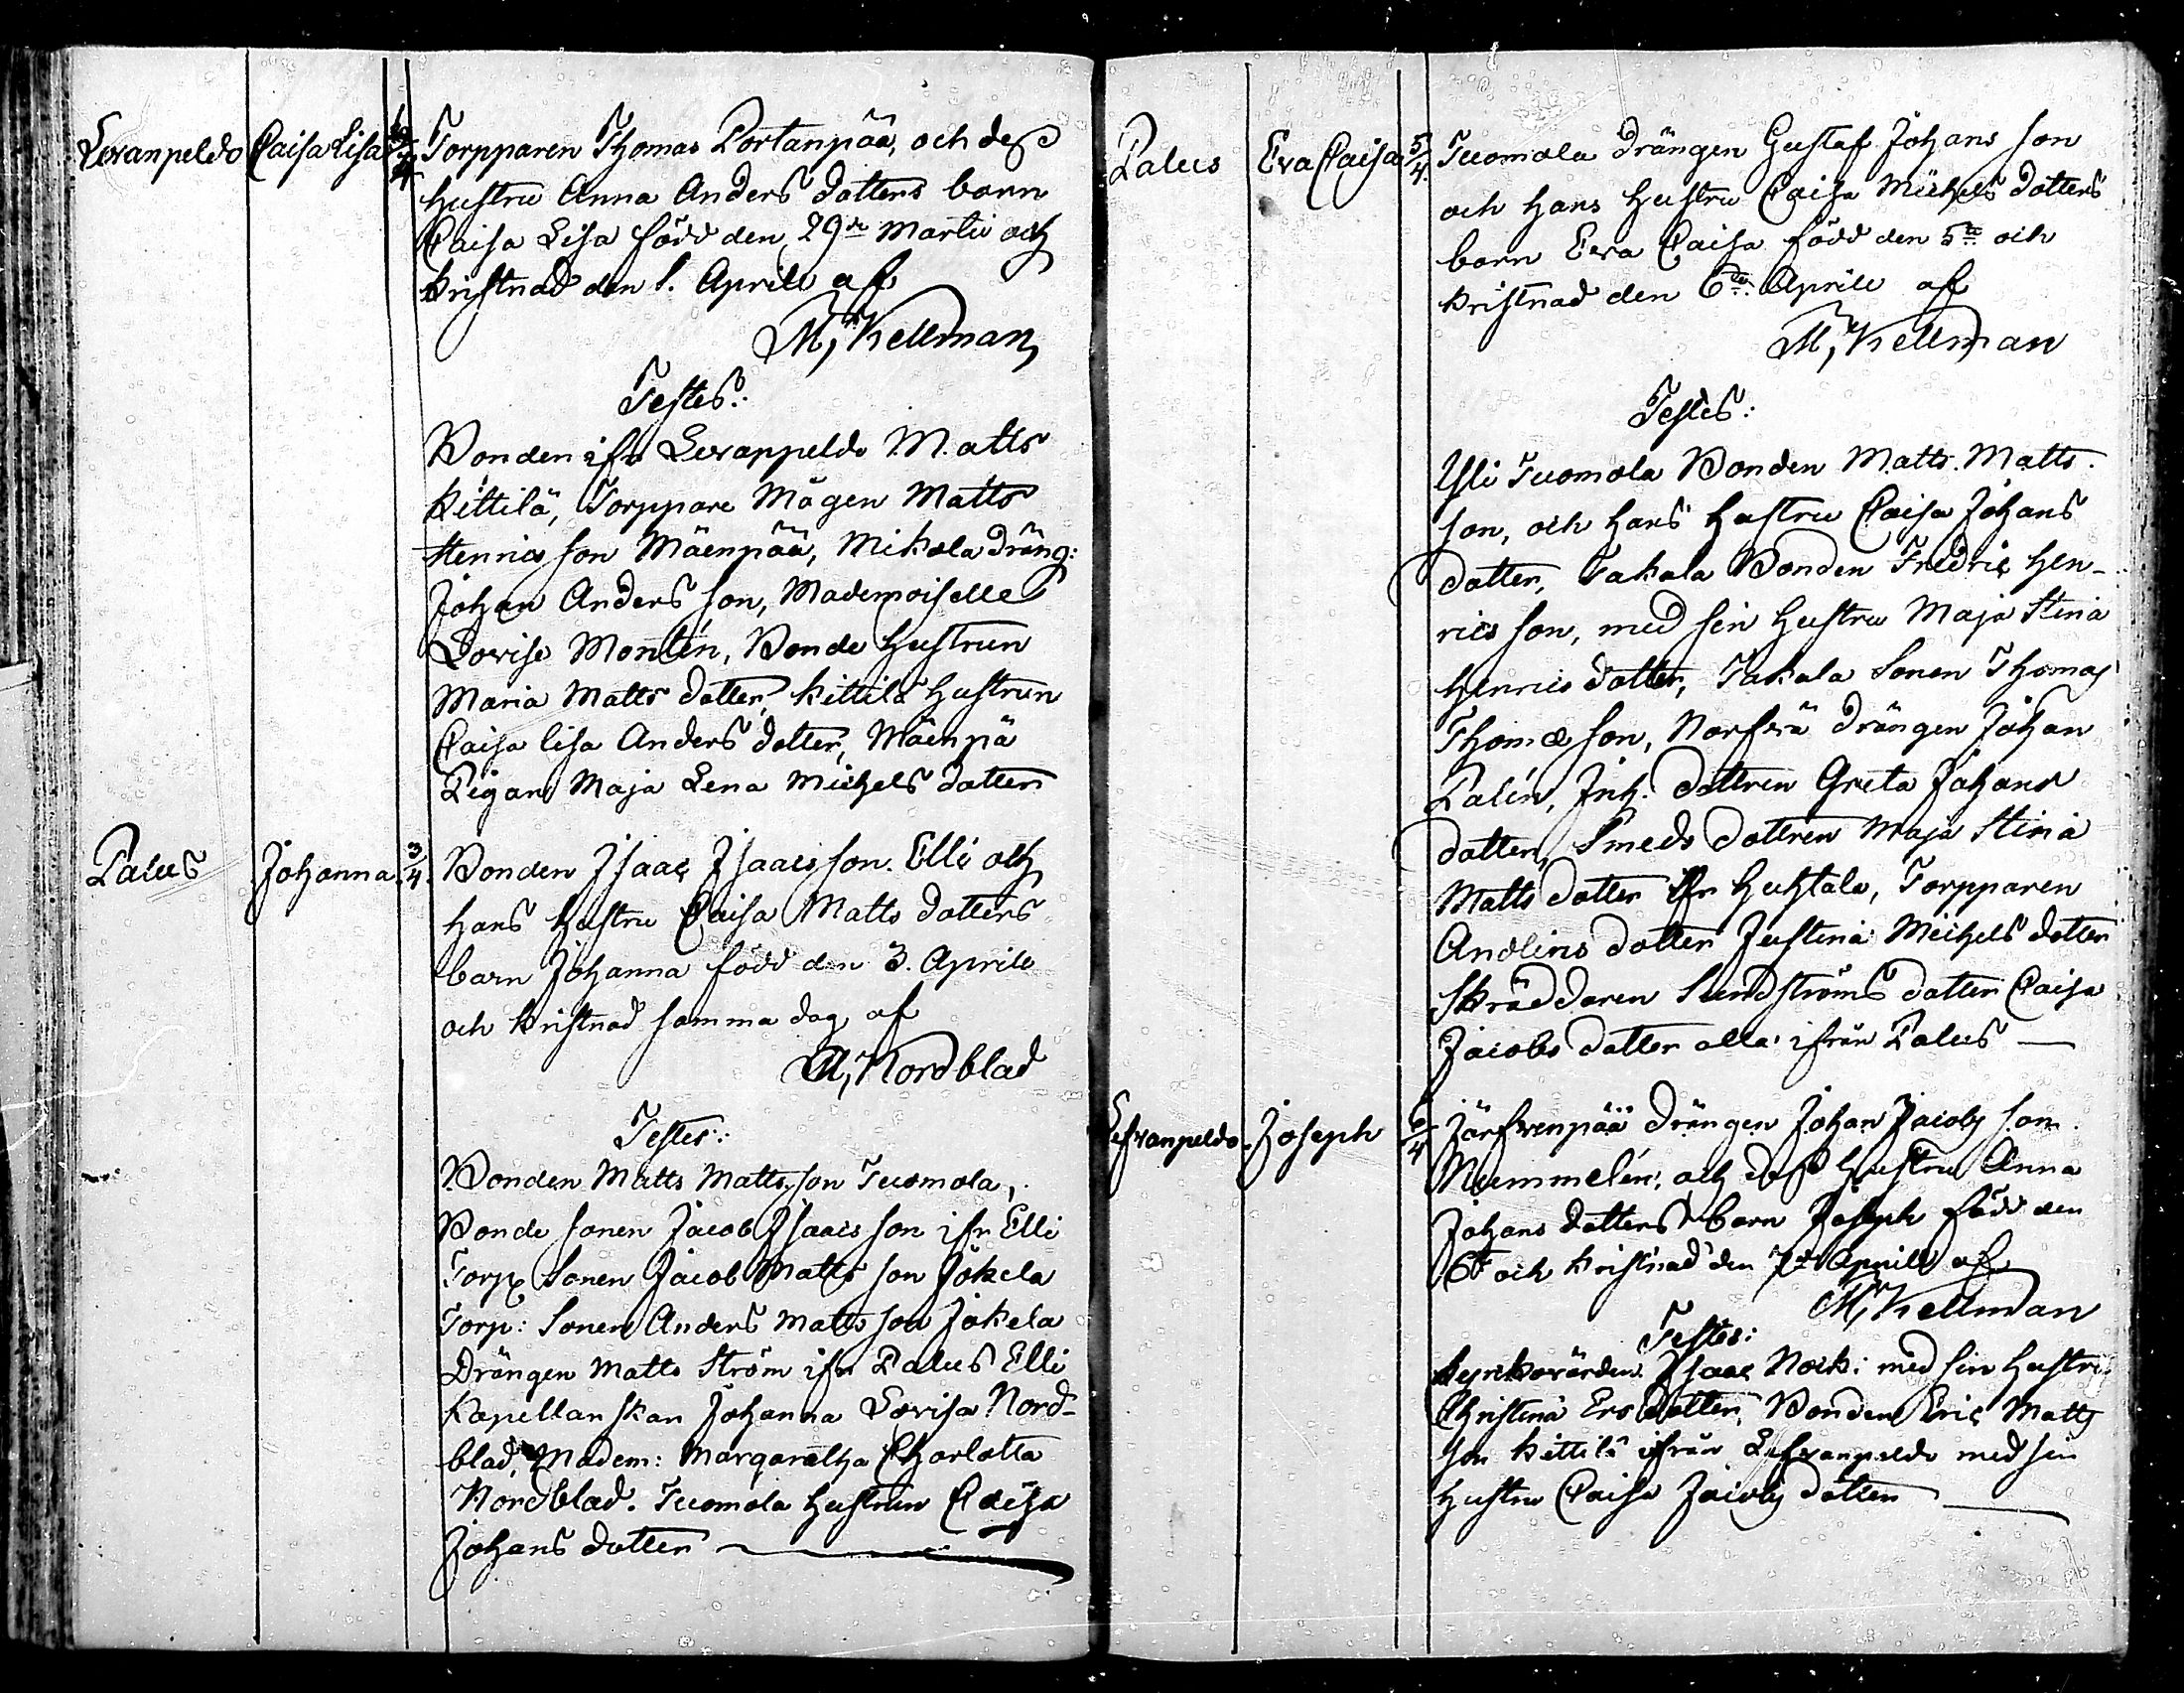 Levanpeldo Caisa Lisa 1/4 Torpparen Thomas Portanpää, och dess
hustru Anna Anders dotters barn
Caisa Lisa född den 29de Martii och
kristnad den 1. Aprill af
M, Kellman
Testes:
Bonden ifr Levanpeldo Matts
Kittilä, Torppare Mågen Matts
Henrics son Mäenpää, Mikola Dräng:
Johan Anders son, Mademoiselle
Lovisa Montin, Bonde hustrun
Maria Matts dotter, Kittilä hustrun
Caisa lisa Anders dotter, Mäenpä
Pigan Maja Lena Michels dotter
Palus Johanna 3/4. Bonden Isaac Isaacs son Elli och
hans hustru Caisa Matts dotters
barn Johanna född den 3. Aprill
och kristnad samma dag af
M, Nordblad
Testes:
Bonden Matts Matts son Tuomola,
Bonde sonen Jacob Isaacs son ifr Elli
Torp Sonen Jacob Matts son Jokela
Torp: Sonen Anders Matts son Jokela
Drängen Matts Ström ifr Palus Elli
Kapellanskan Johanna Lovisa Nord-
blad, Madem: Margaretha Charlotta
Nordblad. Tuomola hustrun Caisa
Johans dotter
Palus Eva Caisa 5/4. Tuomola Drängen Gustaf Johans son
och hans hustru Caisa Michels dotters
barn Eva Caisa född den 5te och
kristnad den 6te Aprill af
M, Kellman
Testes:
Yli Tuomola Bonden Matts Matts
son, och hans hustru Caisa Johans
dotter, Takala Bonden Fredric Hen-
rics son, med sin hustru Maja Stina
Henrics dotter, Takala Sonen Thomas
Thomæ son, Norfvä Drängen Johan
Palén, Inh. dottren Greta Johans
dotter, Smeds dottren Maja Stina
Matts dotter ifr Huhtala, Torpparen
Andlins dotter Justina Michels dotter
Skräddaren Sundströms dotter Caisa
Jacobs dotter alla ifrån Palus
Lefvanpeldo Joseph 6/4 Järfvenpää Drängen Johan Jacobs son
Mummelin, och dess hustru Anna
Johans dotters barn Joseph född den
6te och kristnad den 7de Aprill af
M, Kellman
Testes:
Kyrkovärden Isaac Nock: med sin hustru
Christina Ers dotter, Bonden Eric Matts
son Kittilä ifrån Lefvanpeldo med sin
hustru Caisa Jacobs dotter